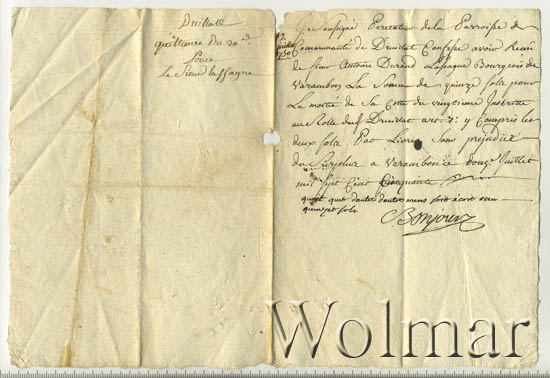 Druillat
quittance Du 20.e
Pour
Le Sieur Laffagne
12
juillet
1750
Je Soussigné Perceteur de la Parroisse de
Communauté de Druillat Confesse avoir Receu
de sieur Antoine Durand Laffagne Bourgeois de
Varambon La Somme de quinze sols pour
La moitié de Sa Cotte du vingtieme Inserette
au Rolle dud. Druillat art. 7: y Compris les
deux sols Par Livre Sans prejudice
du Surplus a Varambon ce douze Juillet
mil Sept Cent Cinquante
quinze sols
Bonjour
Wolmar